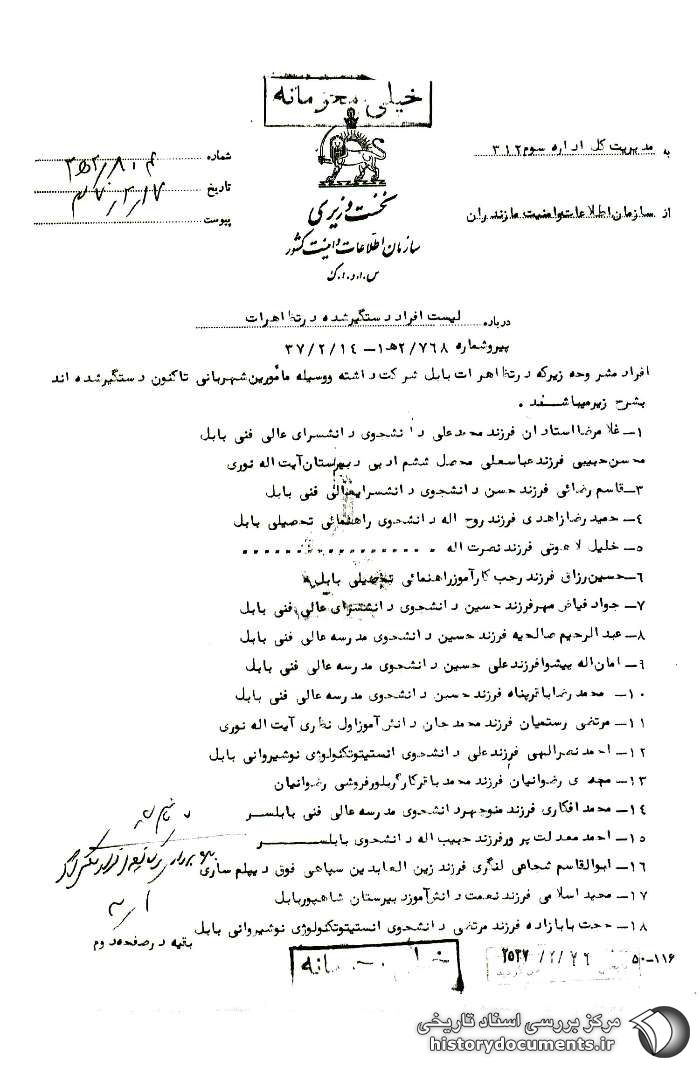 خیلی محرمانه
به مدیریت کل اداره سوم ۳۱۲
شماره
از سازمان اطلاعات و امنیت مازندران
تاریخ ۳۷/۲/۱۷
پیوست
نخست وزیری
سازمان اطلاعات و امنیت کشور
س.ا.و.ا.ک
درباره لیست افراد دستگیر شده در تظاهرات
پیرو شماره ۲/۷۶۸ه۱ــ ۳۷/۲/۱۴
افراد مشروحه زیر که در تظاهرات بابل شرکت داشته و وسیله مأمورین شهربانی تاکنون دستگیر شده اند
بشرح زیر میباشند .
۱ــ غلامرضا استادان فرزند محمد علی دانشجوی دانشسرای عالی فنی بابل
محسن حبیبی فرزند عباسعلی محصل ششم ادبی دبیرستان آیت اله نوری
۳ــ قاسم رضائی فرزند حسن دانشجوی دانشسرایعالی فنی بابل
۴ــ حمید رضا زاهدی فرزند روح اله دانشجوی راهنمائی تحصیلی بابل
۵ــ خلیل لاهوتی فرزند نصرت اله " " " " " " " " " " " " " " " "
۶ــ حسین رزاق فرزند رجب کارآموز راهنمائی تحصیلی بابل
۷ــ جواد فیاض مهر فرزند حسین دانشجوی دانشسرای عالی فنی بابل
۸ــ عبدالرحیم صالحیه فرزند حسین دانشجوی مدرسه عالی فنی بابل
۹ــ امان اله پیشوا فرزند علی حسین دانشجوی مدرسه عالی فنی بابل
۱۰ــ محمد رضا باقرپناه فرزند حسین دانشجوی مدرسه عالی فنی بابل
۱۱ــ مرتضی رستمیان فرزند محمد جان دانش آموز اول نظری آیت اله نوری
۱۲ــ احمد نصرالهی فرزند علی دانشجوی انستیتو تکنولوژی نوشیروانی بابل
۱۳ــ مهدی رضوانیان فرزند محمد باقر کارگر بلور فروشی رضوانیان
۱۴ــ محمد افکاری فرزند منوچهر دانشجوی مدرسه عالی فنی بابلسر
۱۵ــ احمد معدلت پرور فرزند حبیب اله دانشجوی بابلسر
۱۶ــ ابوالقاسم شجاعی لنگری فرزند زین العابدین سپاهی فوق دیپلم ساری
۱۷ــ مجید اسلامی فرزند نعمت دانش آموز دبیرستان شاهپور بابل
۱۸ــ حجت بابازاده فرزند مرتضی دانشجوی انستیتو تکنولوژی نوشیروانی بابل
بقیه در صفحه دوم
۵۰ــ۱۱۶
۲۵۳۷/۲/۲۶
خیلی محرمانه
مرکز بررسی اسناد تاریخی
historydocuments.ir